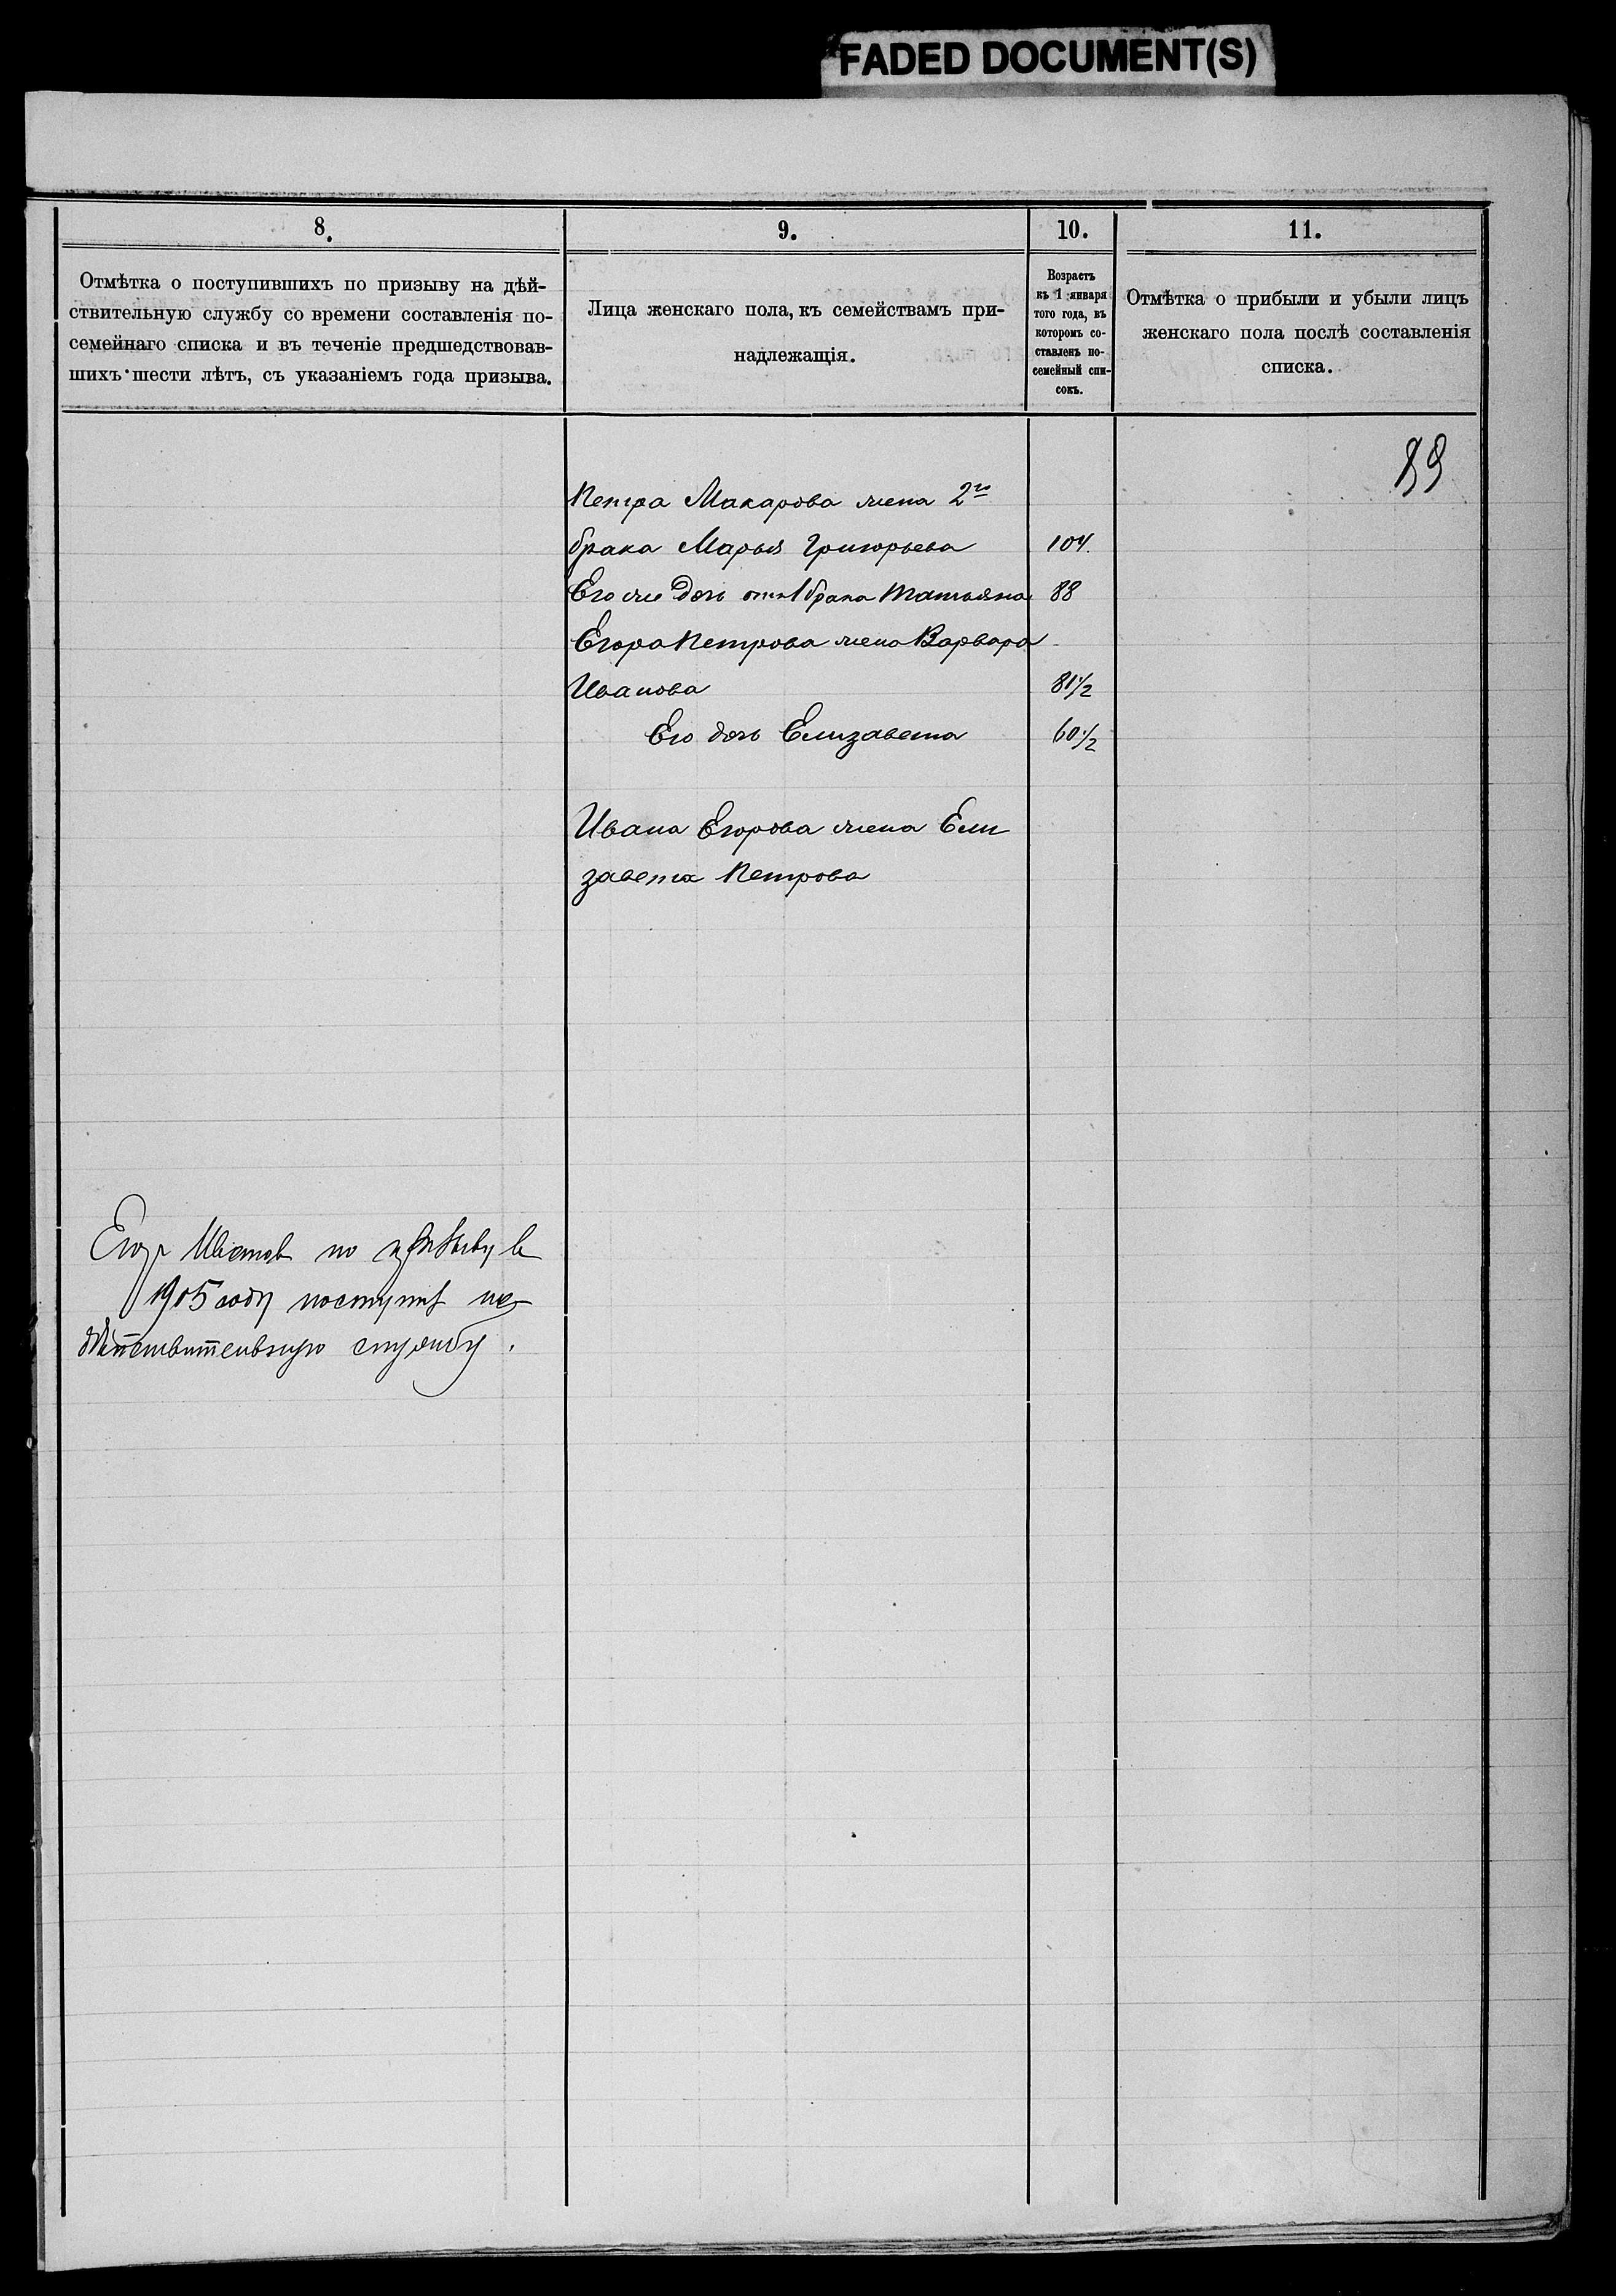 FADED DOCUMENT(S)
8.
9.
10.
11.
Отмѣтка о поступившихъ по призыву на дѣй-
ствительную службу со времени составленія по-
семейнаго списка и въ теченіе предшедствовав-
шихъ шести лѣтъ, съ указаніемъ года призыва.
Лица женскаго пола, къ семействамъ при-
надлежащія.
Возрастъ
къ 1 января
того года, въ
которомъ со-
ставленъ по-
семейный спи-
сокъ.
Отмѣтка о прибыли и убыли лицъ
женскаго пола послѣ составленія
списка.
89
Петра Макарова жена 2го
брака Марья Григорьева 104.
Его же дочь отъ 1 брака Татьяна 88
Егора Петрова жена Варвара -
Иванова 81 1/2
Его дочь Елизавета 60 1/2
Ивана Егорова жена Ели
завета Петрова
Егор по призыву в
1905 году поступил на
дѣйствительную службу.